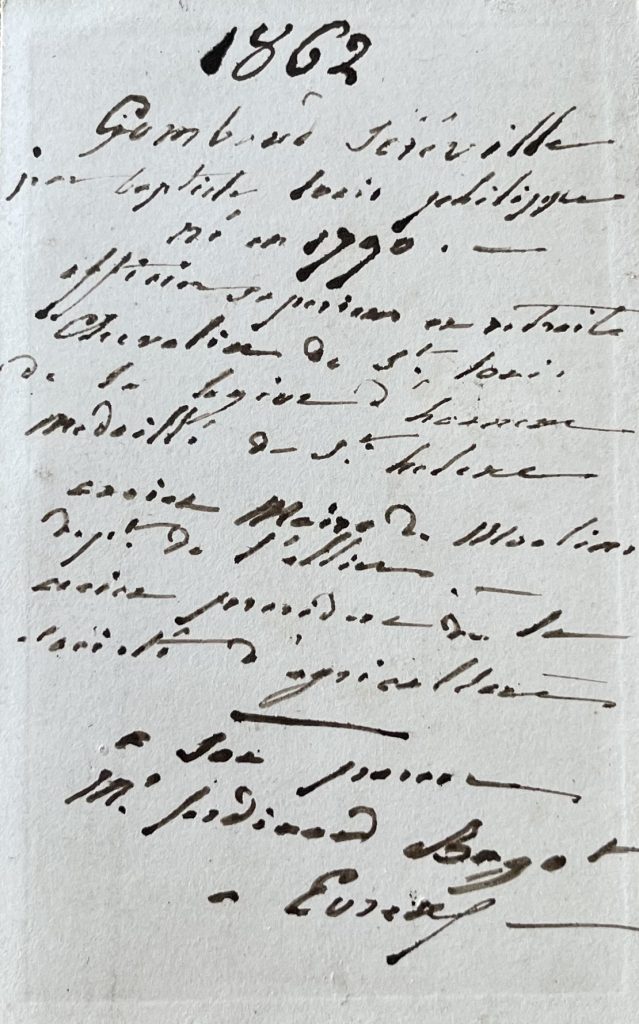 1862
Gombaud Séréville
jean baptiste louis philippe
né en 1790. —
officier superieur en retraite
Chevalier de St. louis
de la legion d'honneur
Medaillé de St. helene
ancien Maire de Moulins
dept. de l'allier —
ancien president de la
société d'agriculture
a son parent
Mr. ferdinand Bagot
a Evreux